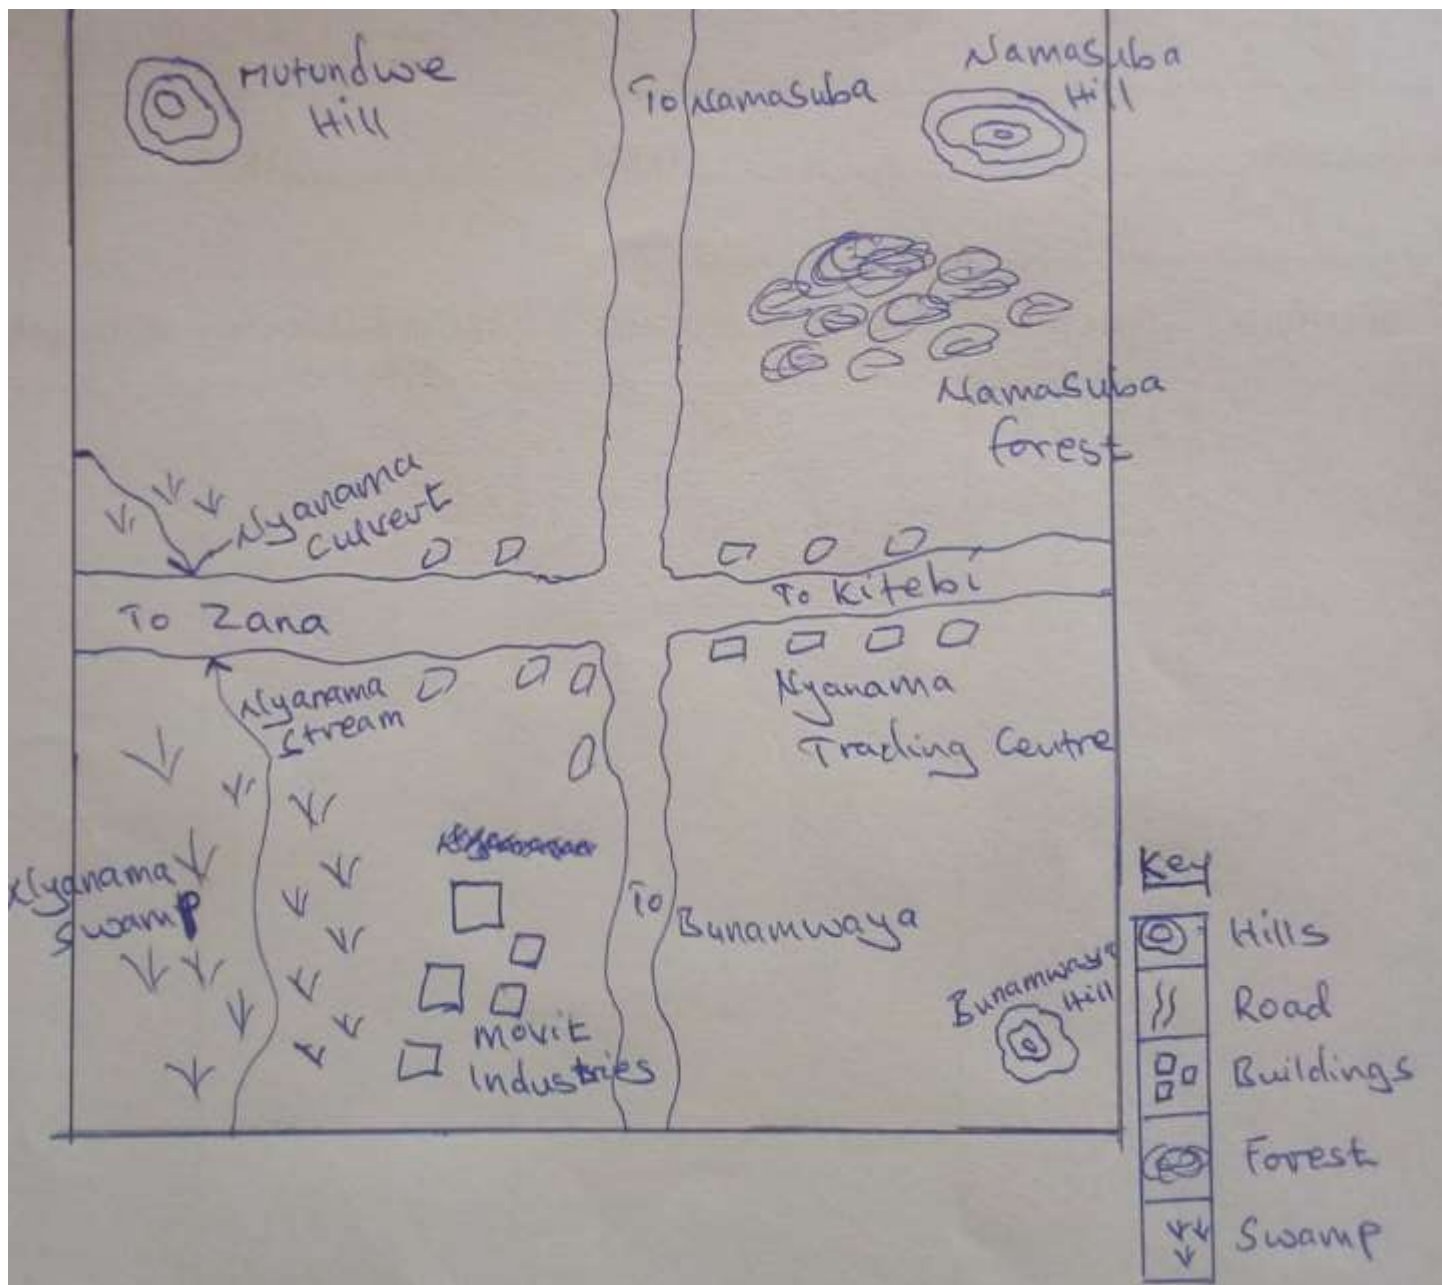 Mutundwe
Hill
To Namasuba
Namasuba
Hill
Namasuba
forest
Nyanama
Culvert
To Zana
To Kitebi
Nyanama
Stream
Nyanama
Trading Centre
Nyanama
Swamp
To Bunamwaya
Movit
Industries
Bunamwaya
Hill
Key
Hills
Road
Buildings
Forest
Swamp